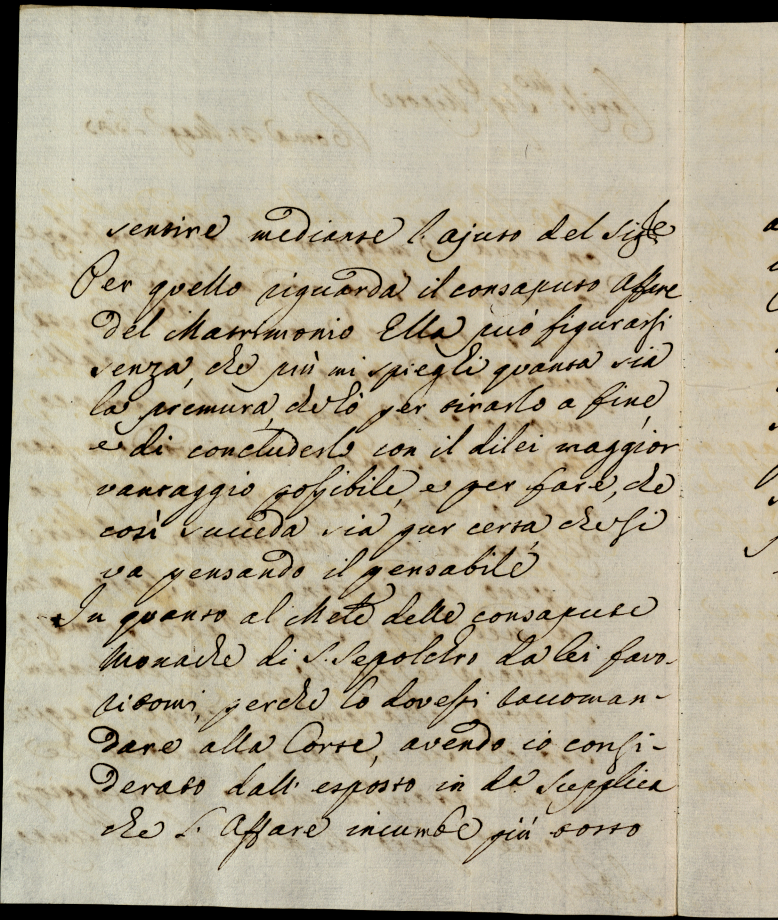 sentire mediante l'ajuto del Sig.re
Per quello riguarda il consaputo affare
del Matrimonio Ella può figurarsi
senza, che più mi spieghi quanta sia
la premura, che hò per tirarlo a fine,
e di concluderlo con il dilei maggior
vantaggio possibile, e per fare, che
così succeda sia pur certa che si
va pensando il pensabile
In quanto al Mem.le delle consapute
Monache di S. Sepolchro da lei favo-
ritomi, perche lo dovessi raccoman-
dare alla Corte, avendo io consi-
derato dall' esposto in da Supplica
che l' Affare incumbe più tosto